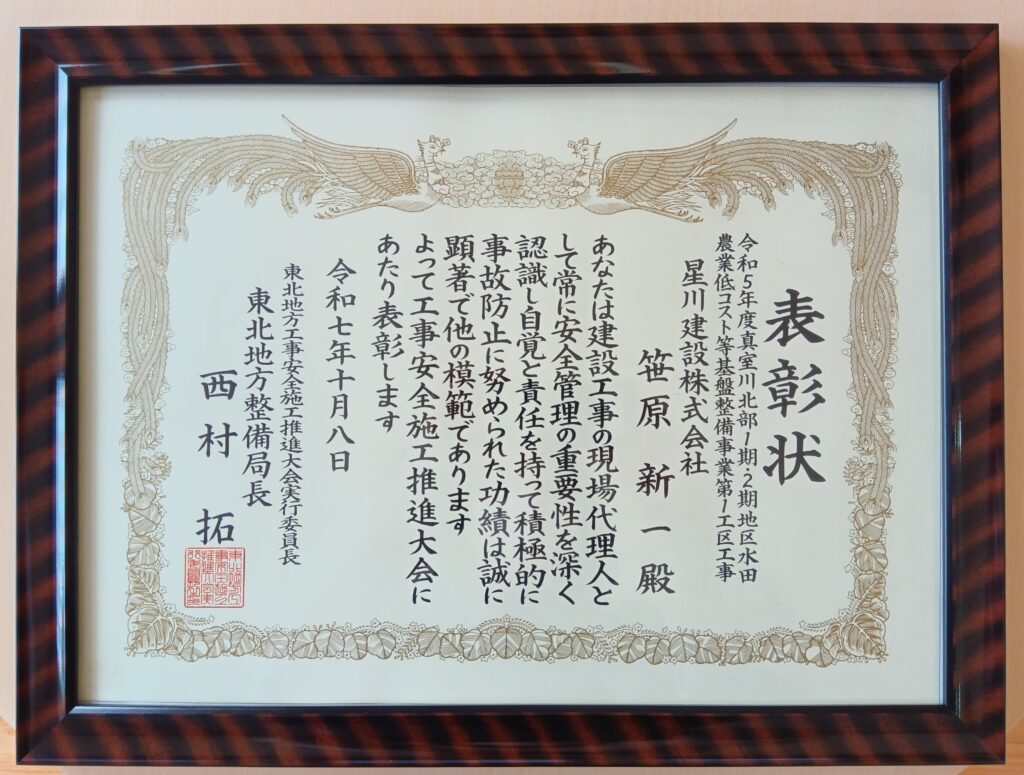 表彰状
令和5年度真室川北部1期・2期地区水田
農業低コスト等基盤整備事業第1工区工事
星川建設株式会社
笹原新一殿
あなたは建設工事の現場代理人と
して常に安全管理の重要性を深く
認識し自覚と責任を持って積極的に
事故防止に努められた功績は誠に
顕著で他の模範であります
よって工事安全施工推進大会に
あたり表彰します
令和七年十月八日
東北地方工事安全施工推進大会実行委員長
東北地方整備局長
西村拓